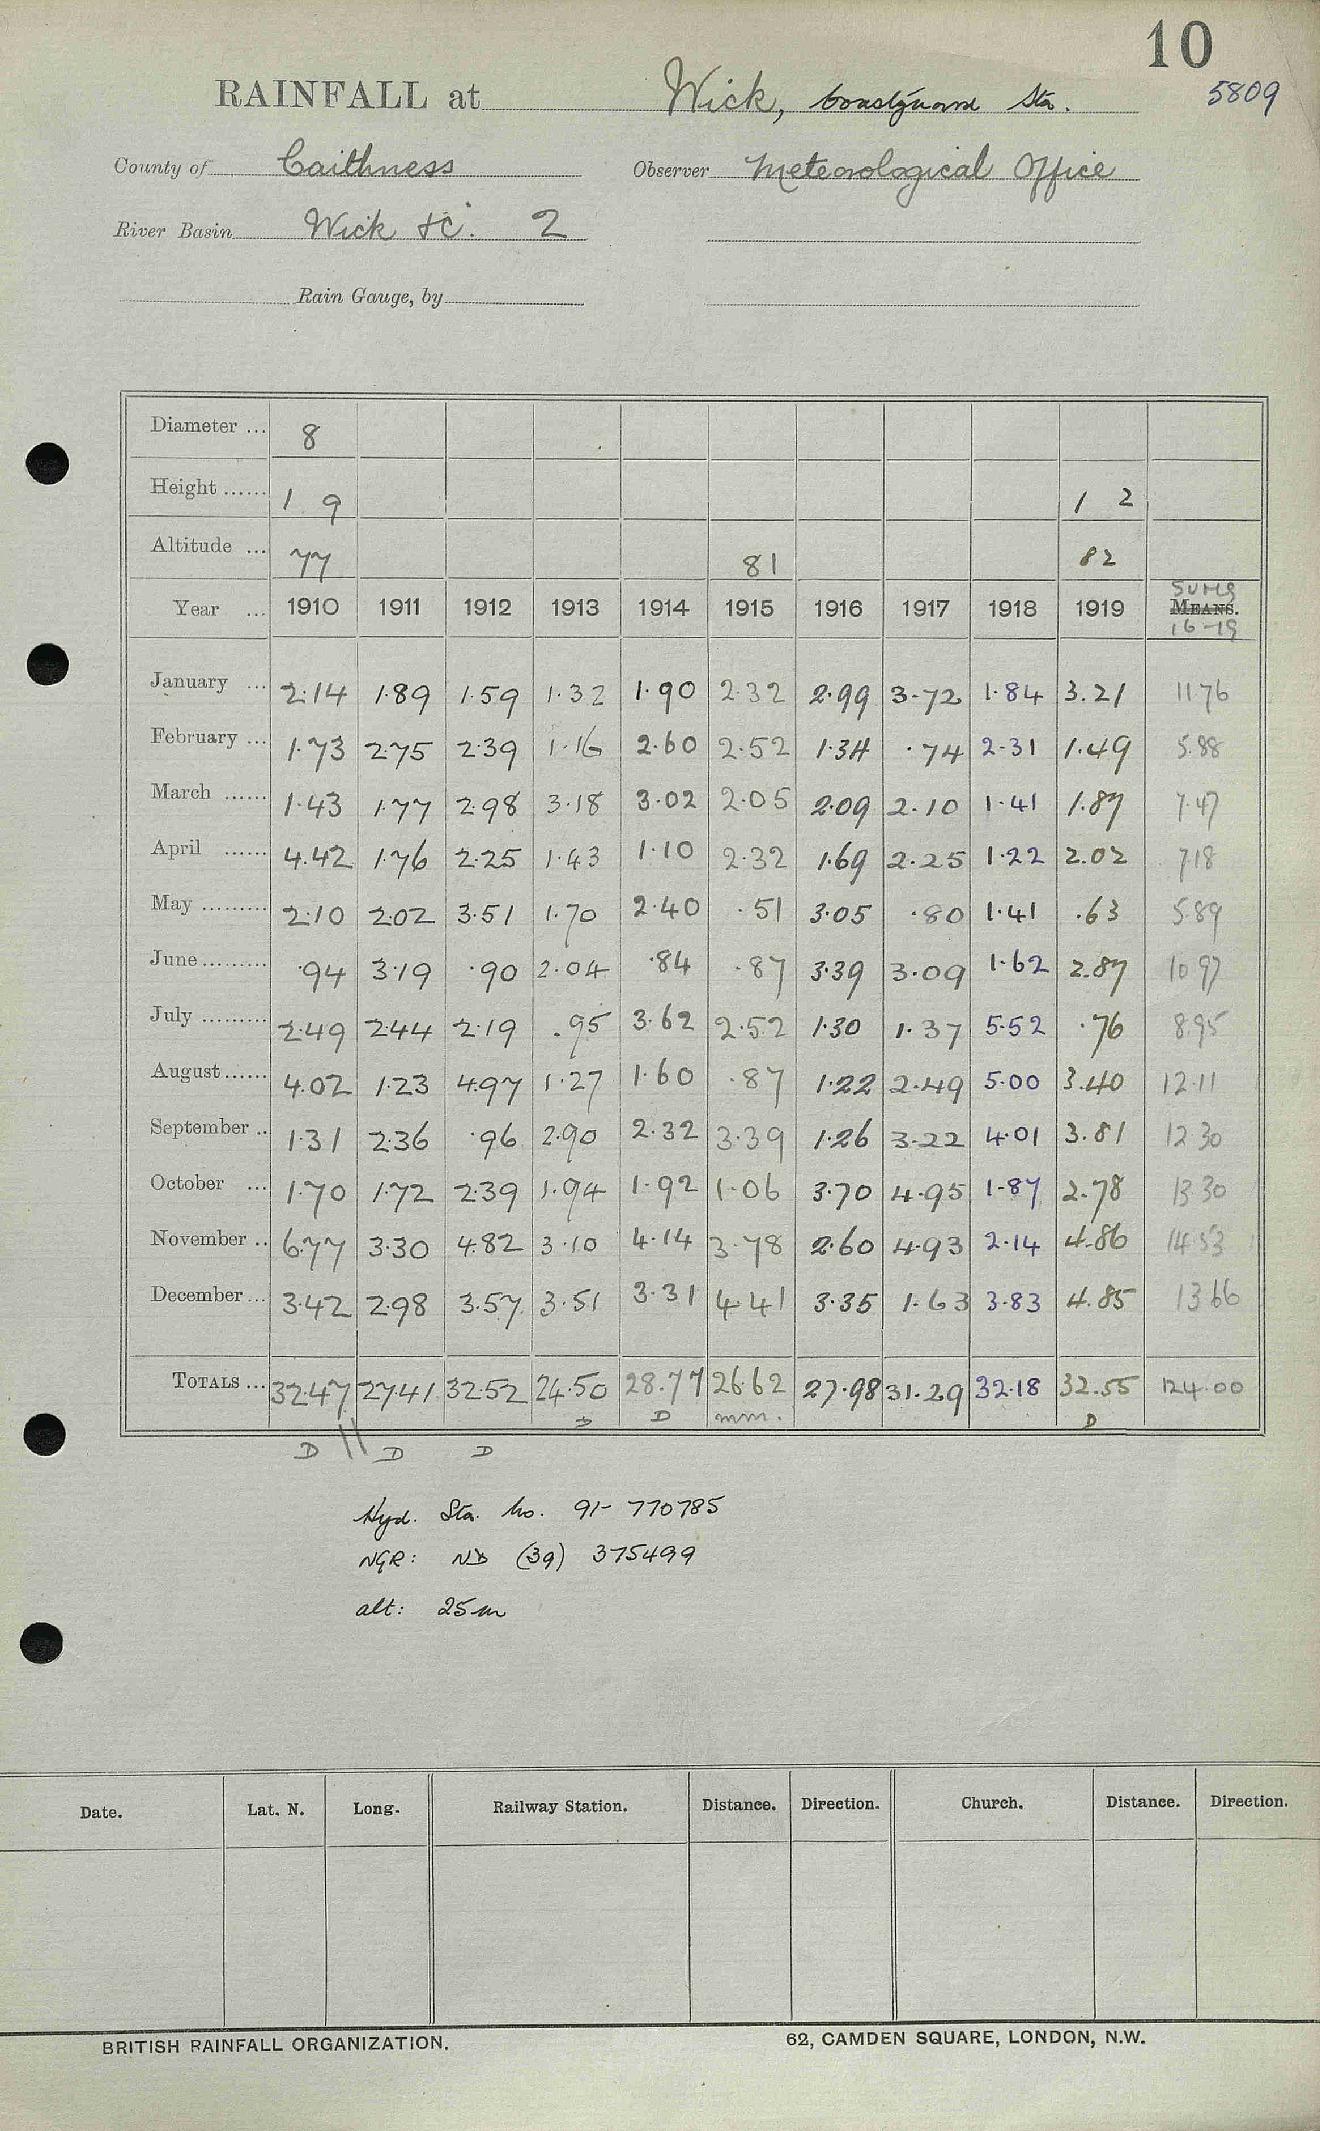 10
RAINFALL at Wick, Coastguard Sta. 5809
County of Caithness Observer Meteorological Office
River Basin Wick &c. 2
Rain Gauge, by
Diameter ... 8
Height ...... 1 9 1 2
Altitude ... 77 81 82
SUMS
Year ... 1910 1911 1912 1913 1914 1915 1916 1917 1918 1919 MEANS.
16-19
January ... 2.14 1.89 1.59 1.32 1.90 2.32 2.99 3.72 1.84 3.21 11 76
February ... 1.73 2.75 2.39 1.16 2.60 2.52 1.34 .74 2.31 1.49 5.88
March ...... 1.43 1.77 2.98 3.18 3.02 2.05 2.09 2.10 1.41 1.87 7.47
April ...... 4.42 1.76 2.25 1.43 1.10 2.32 1.69 2.25 1.22 2.02 7 18
May ......... 2.10 2.02 3.51 1.70 2.40 .51 3.05 .80 1.41 .63 5.89
June ......... .94 3.19 .90 2.04 .84 .87 3.39 3.09 1.62 2.87 10 97
July ......... 2.49 2.44 2.19 .95 3.62 2.52 1.30 1.37 5.52 .76 8.95
August ...... 4.02 1.23 4.97 1.27 1.60 .87 1.22 2.49 5.00 3.40 12.11
September .. 1.31 2.36 .96 2.90 2.32 3.39 1.26 3.22 4.01 3.81 12 30
October ... 1.70 1.72 2.39 1.94 1.92 1.06 3.70 4.95 1.87 2.78 13 30
November .. 6.77 3.30 4.82 3.10 4.14 3.78 2.60 4.93 2.14 4.86 14.53
December ... 3.42 2.98 3.57 3.51 3.31 4.41 3.35 1.63 3.83 4.85 13 66
TOTALS ... 32.47 27.41 32.52 24.50 28.77 26.62 27.98 31.29 32.18 32.55 124.00
D D mm. D
D || D D
Hyd. Sta. No. 91- 770785
NGR: ND (39) 375499
alt: 25m
Date. Lat. N. Long. Railway Station. Distance. Direction. Church. Distance. Direction.
BRITISH RAINFALL ORGANIZATION. 62, CAMDEN SQUARE, LONDON, N.W.